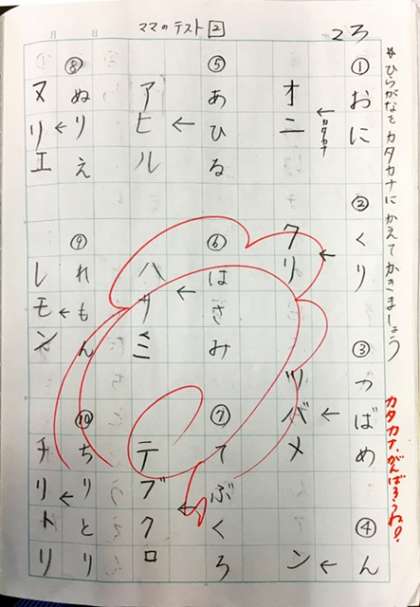 ママのテスト2
23
*ひらがなをカタカナにかえてかきましょう
①おに ②くり ③つばめ ④ん
カタカナ
オニ クリ ツバメ ン
⑤あひる ⑥はさみ ⑦てぶくろ
アヒル ハサミ テブクロ
⑧ぬりえ ⑨れもん ⑩ちりとり
ヌリエ レモン チリトリ
カタカナ、がんばろうね!